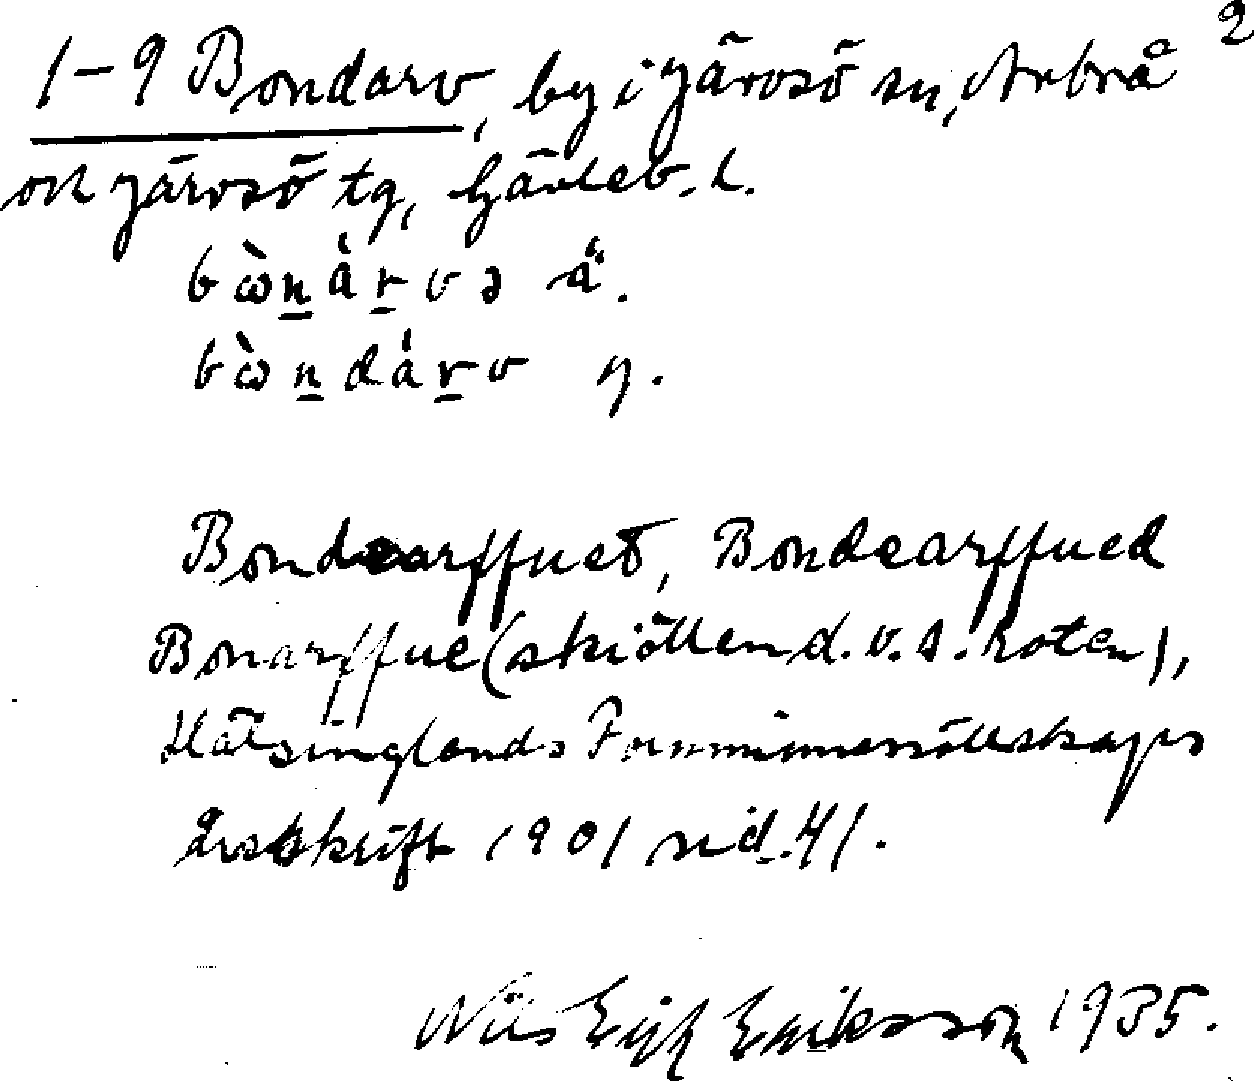 2
1-9 Bondarv, by i Järvsö sn, Arbrå
och Järvsö tg, Gävleb. l.
bὼn̠ȧr̠və ä.
bὼn̠dȧr̠v y.
Bondearffuet, Bondearffued
Bonarffue (skiöttend. v. s. Roten),
Hälsinglands Fornminnessällskaps
årsskrift 1901 sid. 41.
Nils Erik Eriksson 1935.